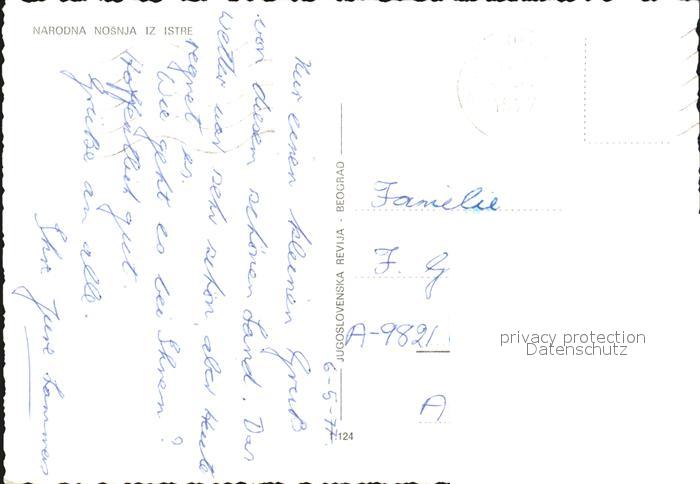 NARODNA NOŠNJA IZ ISTRE
Nur einen kleinen Gruß
von diesem schönen Land. Das
Wetter war sehr schön, aber heute
regnet es.
Wie geht es bei Ihnen?
Hoffentlich gut.
Grüße an alle.
Ihr
6-5-77.
JUGOSLOVENSKA REVIJA - BEOGRAD
124
Familie
F. G
A-9821
A
privacy protection
Datenschutz